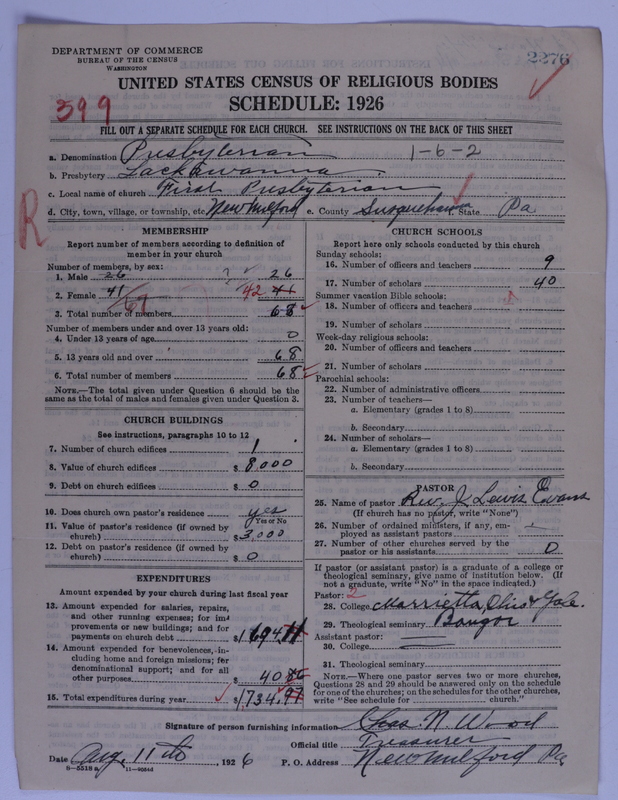 DEPARTMENT OF COMMERCE
BUREAU OF THE CENSUS
WASHINGTON
2276
UNITED STATES CENSUS OF RELIGIOUS BODIES
SCHEDULE: 1926
399
FILL OUT A SEPARATE SCHEDULE FOR EACH CHURCH. SEE INSTRUCTIONS ON THE BACK OF THIS SHEET
a. Denomination Presbyterian 1-6-2
b. Presbytery Lackawanna
c. Local name of church First Presbyterian
d. City, town, village, or township, etc. New Milford e. County Susquehanna f. State Pa
R
MEMBERSHIP
Report number of members according to definition of
member in your church
Number of members, by sex:
1. Male 26 ? 26
2. Female 41 42 41
67
3. Total number of members 68
Number of members under and over 13 years old:
4. Under 13 years of age 0
5. 13 years old and over 68
6. Total number of members 68
NOTE.—The total given under Question 6 should be the
same as the total of males and females given under Question 3.
CHURCH BUILDINGS
See instructions, paragraphs 10 to 12
7. Number of church edifices 1
8. Value of church edifices $ 8,000
9. Debt on church edifices $ 0
10. Does church own pastor's residence yes
Yes or No
11. Value of pastor's residence (if owned by
church) $ 3,000
12. Debt on pastor's residence (if owned by
church) $ 0
EXPENDITURES
Amount expended by your church during last fiscal year
13. Amount expended for salaries, repairs,
and other running expenses; for im-
provements or new buildings; and for
payments on church debt $ 1694.11
14. Amount expended for benevolences, in-
cluding home and foreign missions; for
denominational support; and for all
other purposes $ 40 86
15. Total expenditures during year $ 1734.97
CHURCH SCHOOLS
Report here only schools conducted by this church
Sunday schools:
16. Number of officers and teachers 9
17. Number of scholars 40
Summer vacation Bible schools:
18. Number of officers and teachers
19. Number of scholars
Week-day religious schools:
20. Number of officers and teachers
21. Number of scholars
Parochial schools:
22. Number of administrative officers
23. Number of teachers—
a. Elementary (grades 1 to 8)
b. Secondary
24. Number of scholars—
a. Elementary (grades 1 to 8)
b. Secondary
PASTOR
25. Name of pastor Rev. J. Lewis Evans
(If church has no pastor, write "None")
26. Number of ordained ministers, if any, em-
ployed as assistant pastors
27. Number of other churches served by the
pastor or his assistants 0
If pastor (or assistant pastor) is a graduate of a college or
theological seminary, give name of institution below. (If
not a graduate, write "No" in the space indicated.)
Pastor: 2
28. College Marrietta, Ohio & Yale.
29. Theological seminary Bangor
Assistant pastor:
30. College
31. Theological seminary
NOTE.—Where one pastor serves two or more churches,
Questions 28 and 29 should be answered only on the schedule
for one of the churches; on the schedules for the other churches,
write "See schedule for church."
Signature of person furnishing information Chas N. Wood
Official title Treasurer
Date Aug. 11th 1926 P. O. Address New Milford Pa